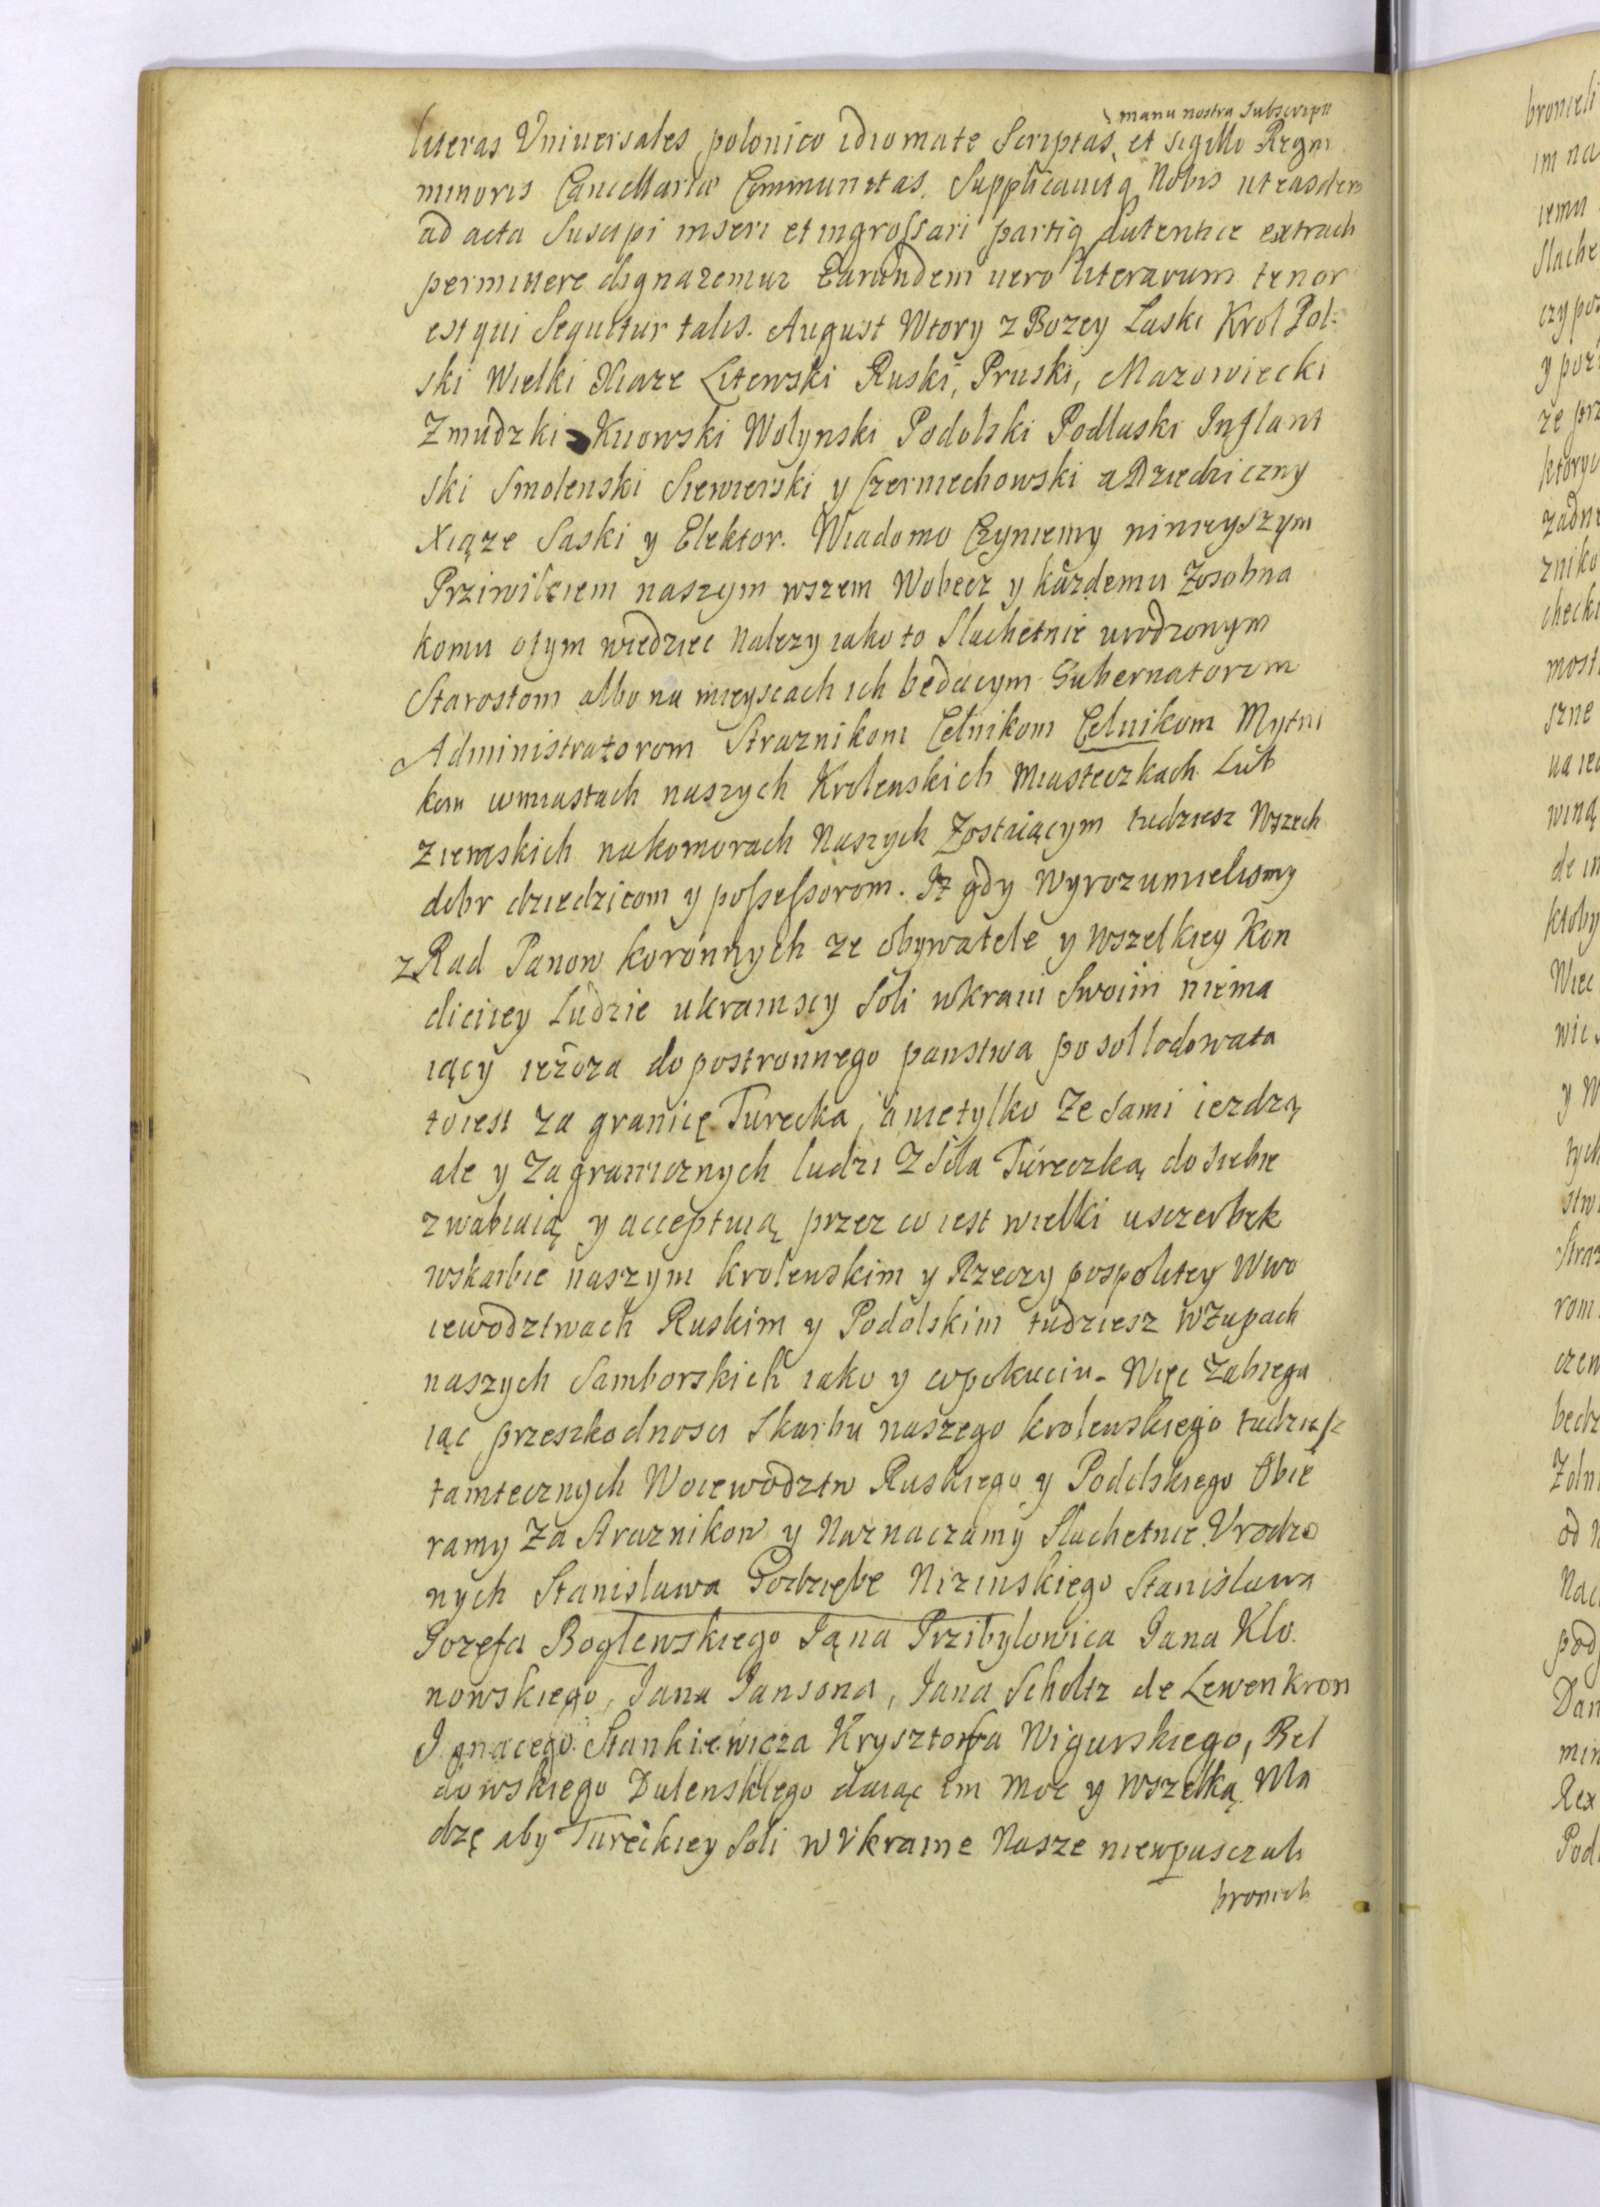 manu nostra Subscript
literas Universales polonico idiomate Scriptas, et sigillo Regni
minoris Cancellariæ Communitas. Supplicauitq Nobis ut easdem
ad acta Suscipi inseri et ingrossari partiq Autentice extradi
permittere dignaremur Earundem uero literarum tenor
est qui Sequitur talis. August Wtory z Bozey Laski Krol Pol-
ski Wielki Xiaze Litewski Ruski, Pruski, Mazowiecki
Zmudzki Kiiowski Wolynski Podolski Podlaski Inflant
ski Smolenski Siewierski y Czerniechowski a Dziedziczny
Xiąze Saski y Elektor. Wiadomo Czyniemy ninieyszym
Prziwileiem naszym wszem Wobecz y kazdemu Zosobna
komu otym wiedziec Nalezy iako to Slachetnie urodzonym
Starostom albo na mieyscach ich będącym Gubernatorom
Administratorom Straznikom Celnikom Celnikom Mytni
kom wmiastach naszych Krolewskich Miasteczkach Lub
Ziemskich nakomorach Naszych Zostaiącym tudziesz Wszech
dobr dziedzicom y possessorom. Iz gdy Wyrozumielismy
z Rad Panow koronnych ze obywatele y Wszelkiey Kon
diciiey Ludzie ukrainscy Soli wkraiu Swoim niema
iący iezdza do postronnego panstwa po sol lodowata
to iest za granicę Turecka, a nietylko Ze sami iezdzą
ale y Zagranicznych ludzi Z Solą Tureczką do siebie
zwabiaią y acceptuią przez co iest wielki usczerbek
wskarbie naszym krolewskim y Rzeczy pospolitey Wwo
iewodztwach Ruskim y Podolskim tudziesz WZupach
naszych Samborskich iako y wpokuciu. Więc Zabiega
iąc przeszkodnosci Skarbu naszego krolewskiego tudziesz
tamtecznych Woiewodztw Ruskiego y Podolskiego Obie
ramy Za Straznikow y Naznaczamy Slachetnie Vrodzo
nych Stanislawa Godziębe Nizinskiego Stanislawa
Jozefa Boglewskiego Jana Przibylowica Jana Klo
nowskiego, Jana Jansona, Jana Scholtz de Lewenkron
Ignacego Stankiewicza Krysztoffa Wigurskiego, Bel
dowskiego Dulenskiego daiąc im Moc y Wszelką Wla
dzę aby Tureckiey Soli w Vkraine Nasze niewpusczali
bronieli